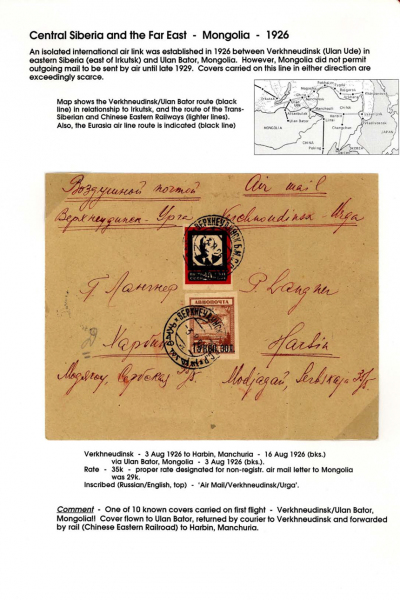 Central Siberia and the Far East - Mongolia - 1926
An isolated international air link was established in 1926 between Verkhneudinsk (Ulan Ude) in
eastern Siberia (east of Irkutsk) and Ulan Bator, Mongolia. However, Mongolia did not permit
outgoing mail to be sent by air until late 1929. Covers carried on this line in either direction are
exceedingly scarce.
Map shows the Verkhneudinsk/Ulan Bator route (black
line) in relationship to Irkutsk, and the route of the Trans-
Siberian and Chinese Eastern Railways (lighter lines).
Also, the Eurasia air line route is indicated (black line)
MONGOLIA
CHINA
Peking
JAPAN
Воздушной почтой Air mail
Верхнеудинск - Урга Verchneoudinsk - Urga
П. Лангнер P. Langner
АВИОПОЧТА
Харбин Harbin
Модягоу, Сербская 35 Modjagou, Serbskaja 35
Verkhneudinsk - 3 Aug 1926 to Harbin, Manchuria - 16 Aug 1926 (bks.)
via Ulan Bator, Mongolia - 3 Aug 1926 (bks.).
Rate - 35k - proper rate designated for non-registr. air mail letter to Mongolia
was 29k.
Inscribed (Russian/English, top) - 'Air Mail/Verkhneudinsk/Urga'.
Comment - One of 10 known covers carried on first flight - Verkhneudinsk/Ulan Bator,
Mongolia!! Cover flown to Ulan Bator, returned by courier to Verkhneudinsk and forwarded
by rail (Chinese Eastern Railroad) to Harbin, Manchuria.